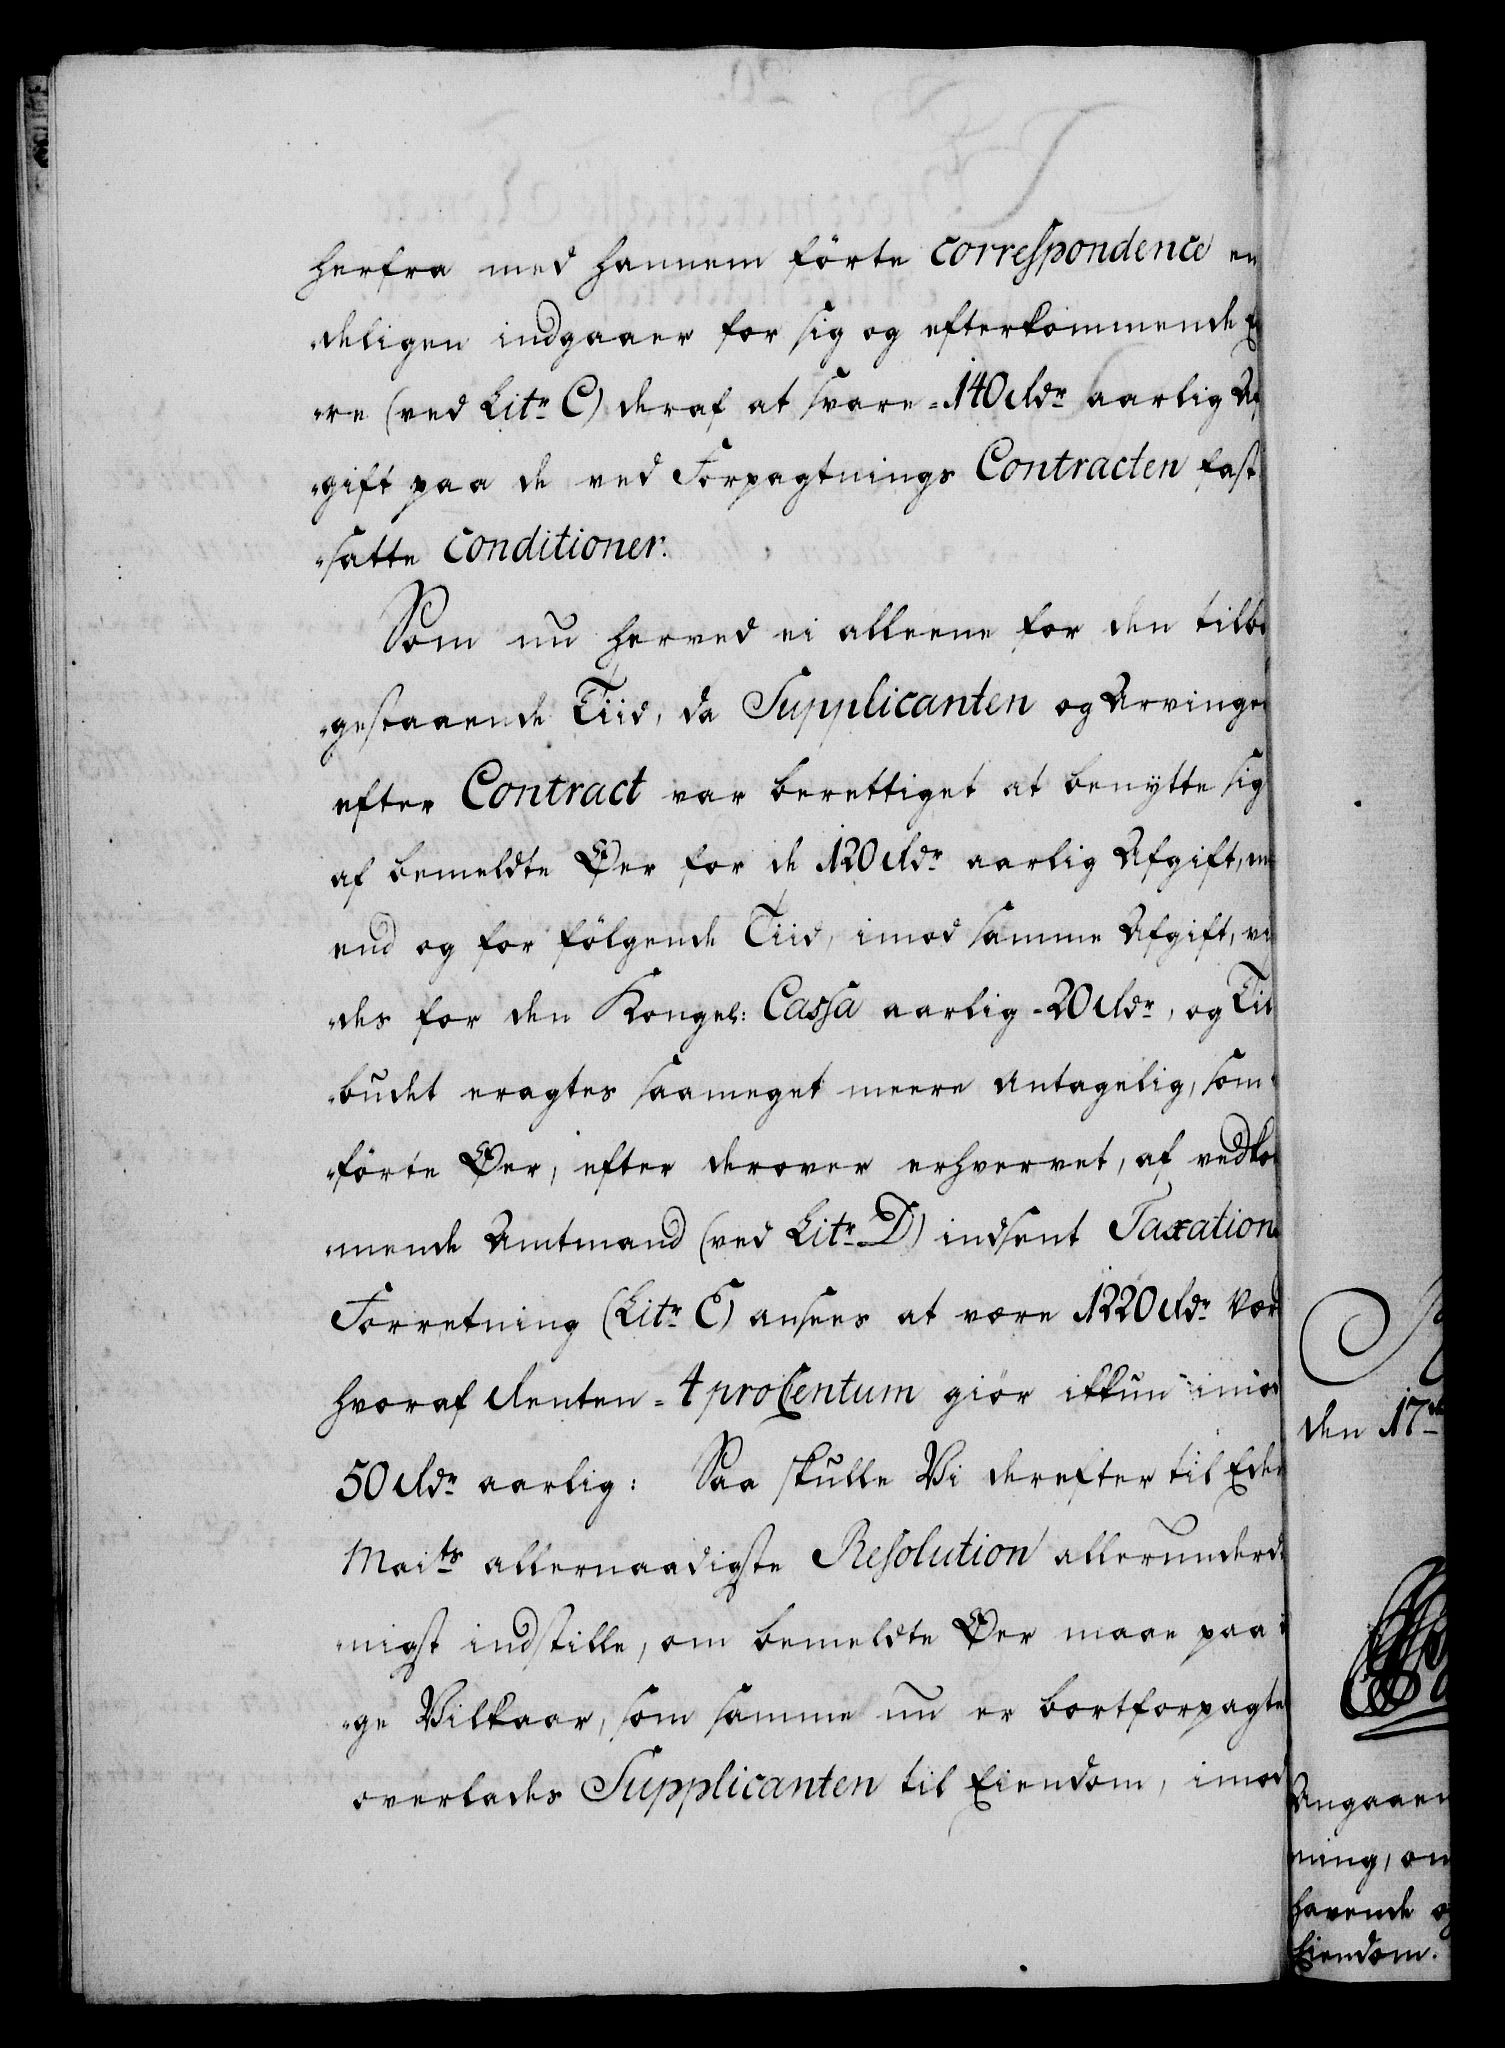 herfra med hannem förte correspondence en
deligen indgaaer for sig og efterkommende E
re (ved Litr C) deraf at svare = 140 Rdr aarlig Af
gift paa de ved Forpagtnings Contracten fast
satte Conditioner.
Som nu herved ei alleene for den tilba
gestaaende Tiid, da Supplicanten og Arvinge
efter Contract var berettiget at benytte sig
af bemeldte Øer for de 120 Rdr aarlig Afgift, m
end og for fölgende Tiid, imod samme Afgift, vi
des for den Kongel: Cassa aarlig = 20 Rdr, og Til
budet eragtes saameget meere antagelig, som
förte Øer, efter derover erhvervet, af vedko
mende Amtmand (ved Litr D) indsent Taxations
Forretning (Litr E) ansees at være 1220 Rdr Værd
hvoraf Renten = 4 proCentum giör ikkun imod
50 Rdr aarlig: Saa skulle Vi derefter til Eders
Maits allernaadigste Resolution allerunderda
nigst indstille, om bemeldte Øer maae paa
ge Vilkaar, som samme nu er bortforpagtet
overlades Supplicanten til Eiendom, imod
den 17de
Angaaen
ning, om
havende og
Eiendom.